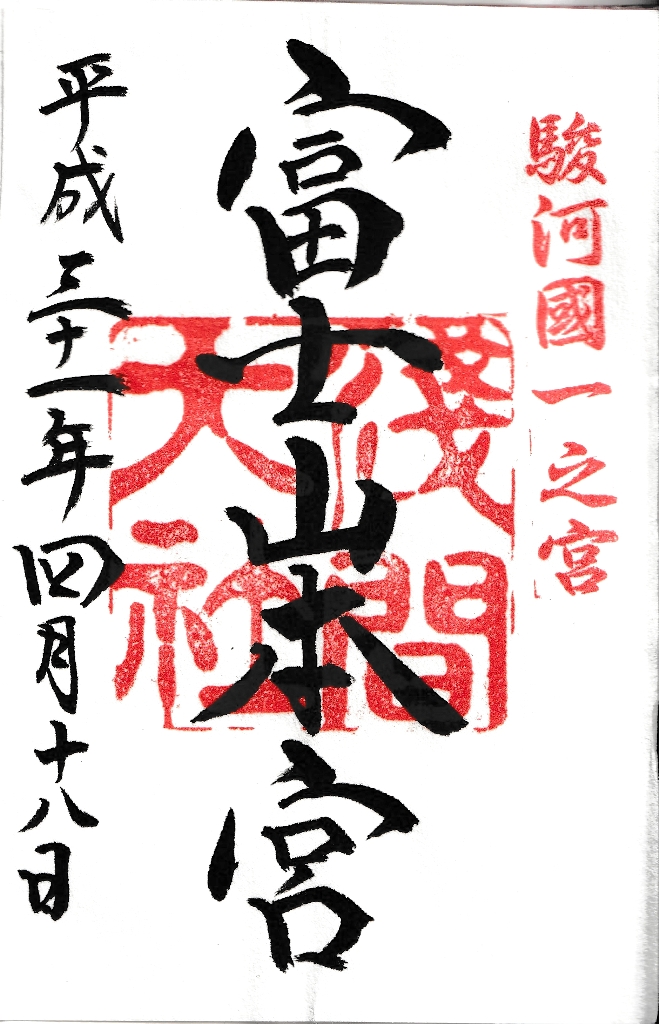 駿河國一之宮
富士山本宮
淺間
大社
平成三十一年四月十八日